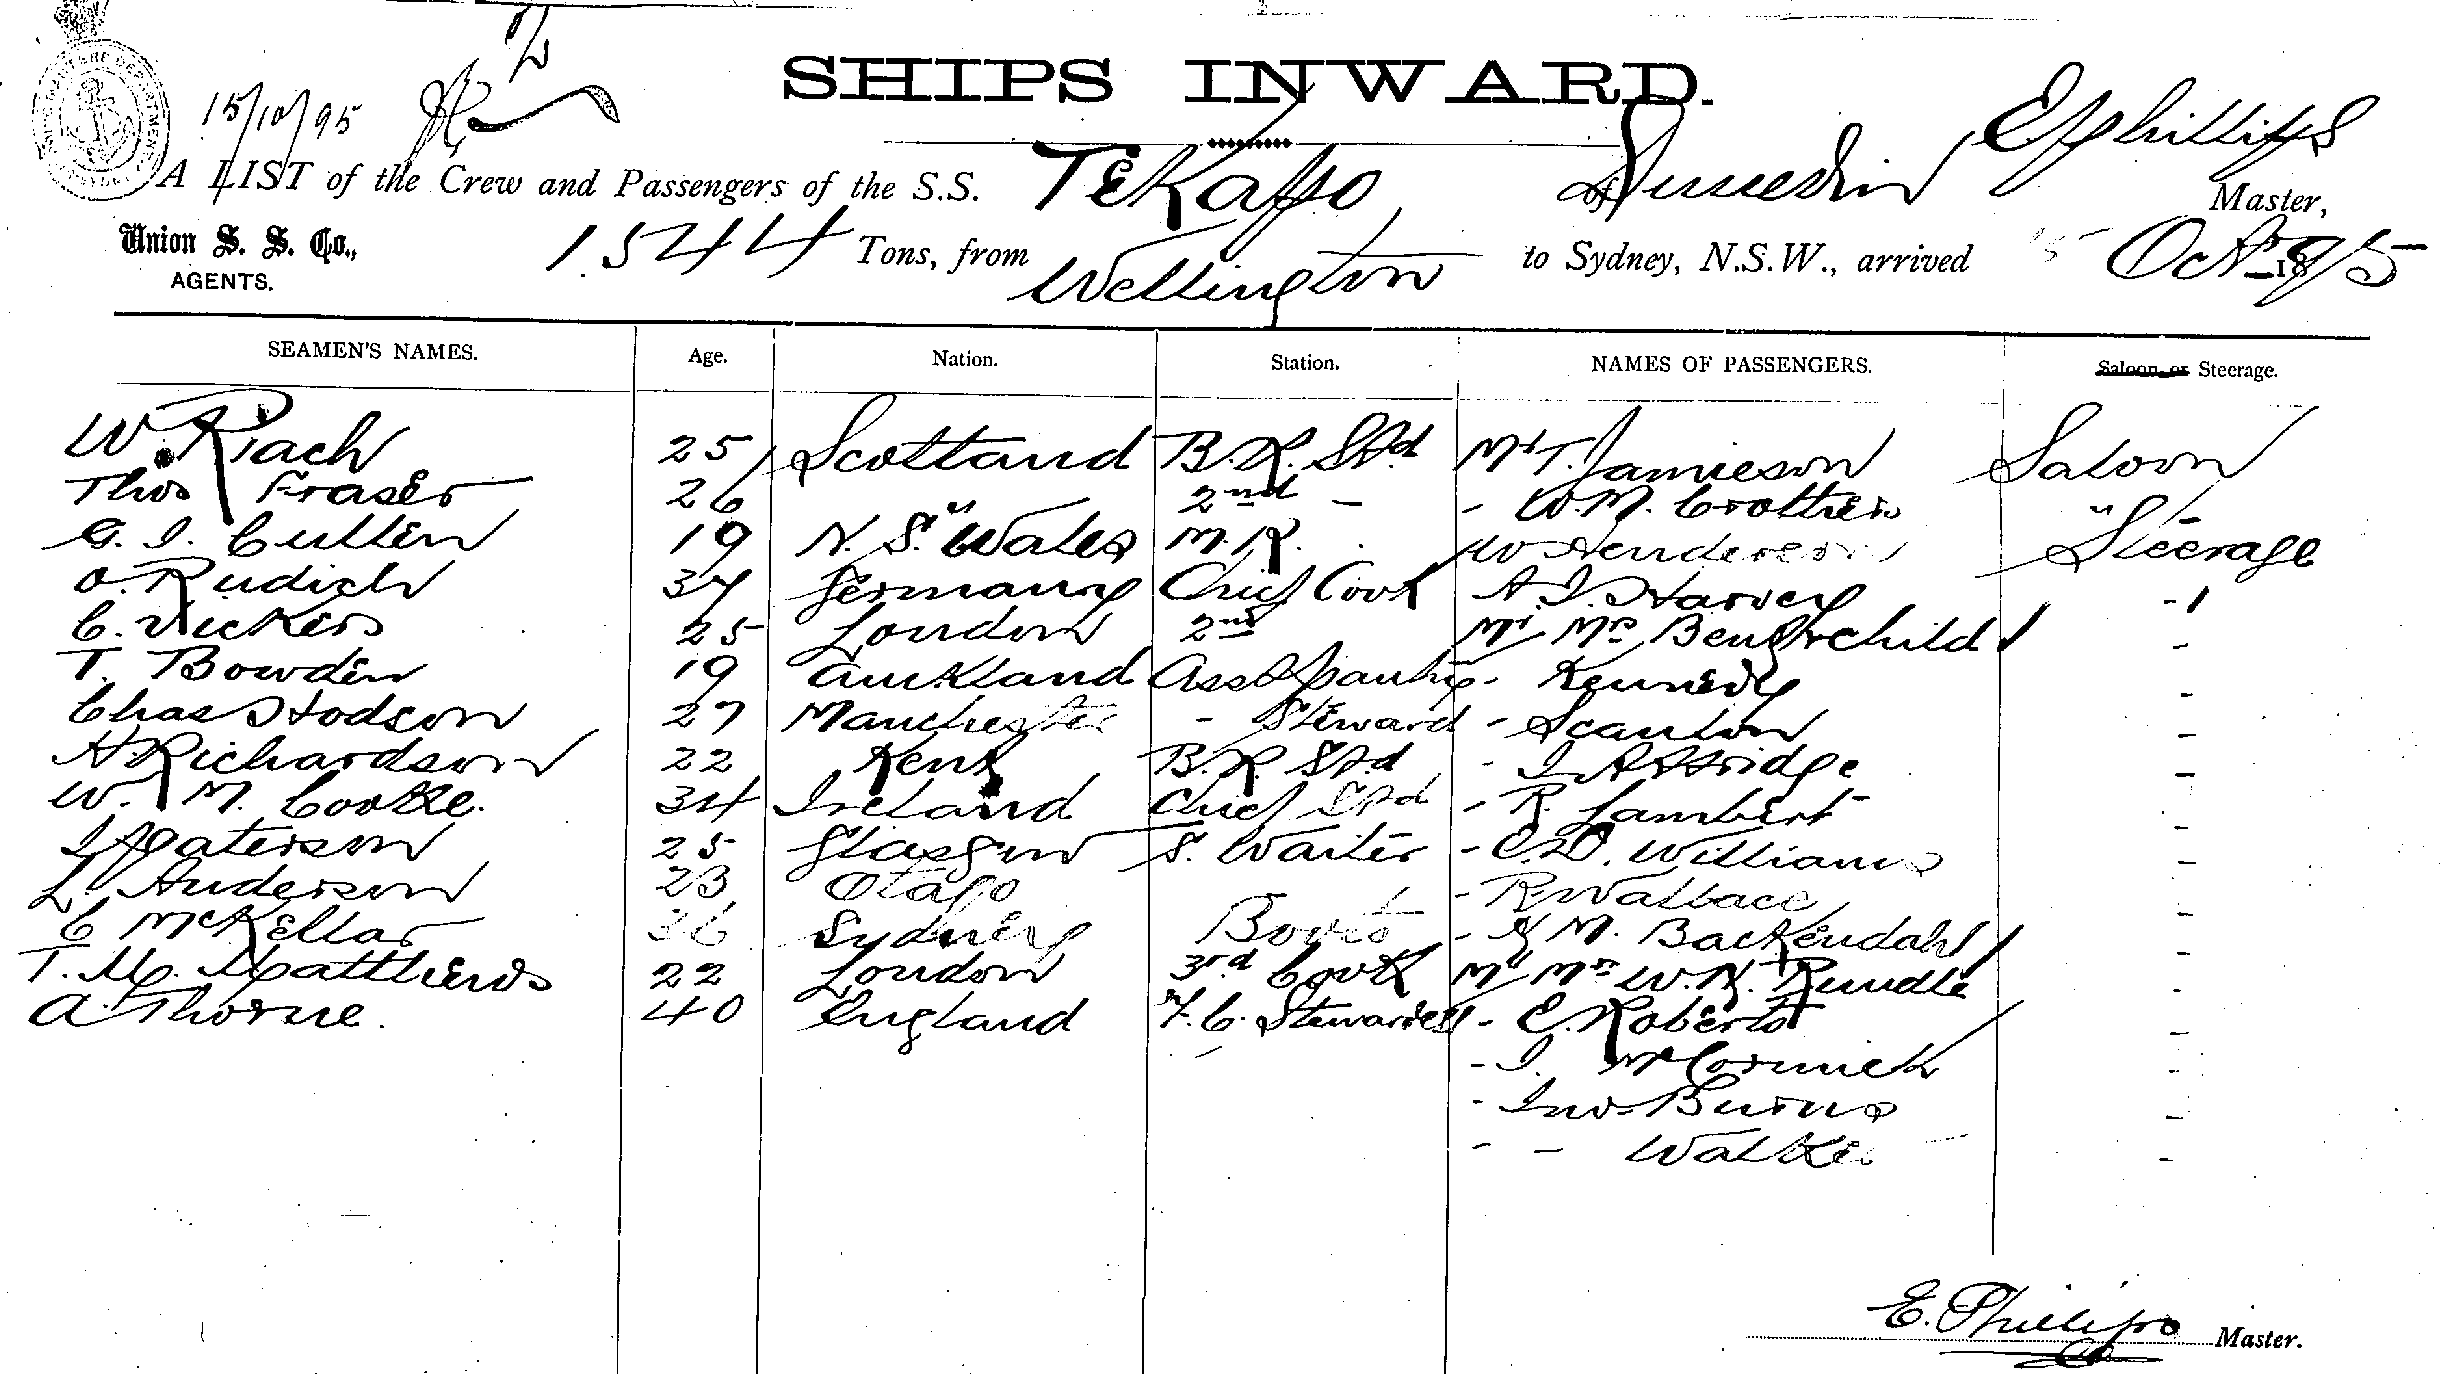 SHIPS INWARD.
15/10/95
A LIST of the Crew and Passengers of the S.S. Tekapo of Dunedin E Phillips Master,
Union S. S. Co., AGENTS. 1544 Tons, from Wellington to Sydney, N.S.W., arrived 15 Oct 1895
SEAMEN'S NAMES. Age. Nation. Station. NAMES OF PASSENGERS. Saloon or Steerage.
W. Riach 25 Scotland B.R. Std Mr T. Jamieson Saloon
Thos Fraser 26 " 2nd - - W.M. Crothers "
G. I. Cullen 19 N. S. Wales M.R. W Henderson Steerage
O. Rudich 37 Germany Chief Cook A. J. Harvey -
C. Vickers 25 London 2nd Mr Mrs Beng & child -
T. Bowden 19 Auckland Asst Pantry - Kennedy -
Chas Hodson 27 Manchester - Steward - Scanlon -
H. Richardson 22 Kent B.R. Std - J. Attridge -
W. M. Cooke. 34 Ireland Chief Std - R. Lambert -
J Paterson 25 Glasgow S. Waiter - C.D. Williams -
L. Anderson 23 Otago - R Wallace -
C McKellar 36 Sydney Boots - M. Backendahl -
T. M. Matthews 22 London 3rd Cook Mr Mrs W.H. Rundle -
A. Thorne. 40 England F.C. Stewardess - E. Roberts -
- J. McCormick -
- Jno Burns -
- - Walker -
E. Phillips Master.